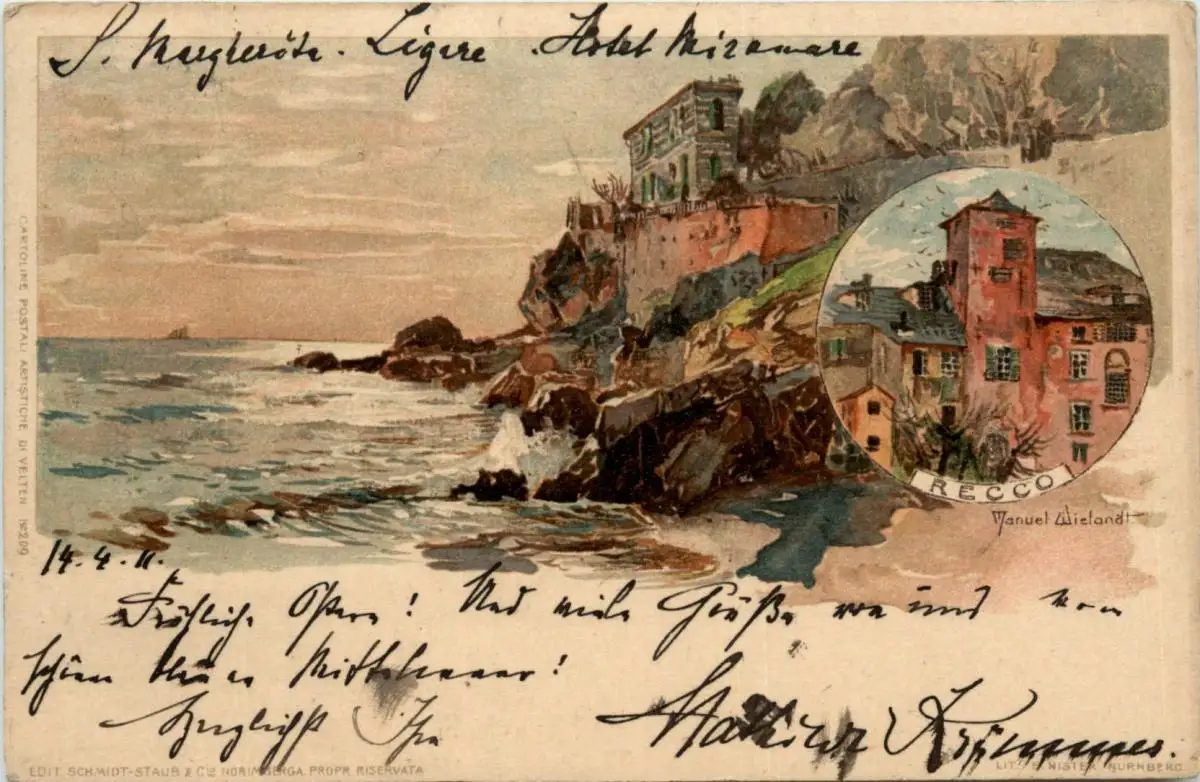 S. Margherita. Ligure. Hotel Miramare
CARTOLINE POSTALI ARTISTICHE DI VELTEN No 209
RECCO
Manuel Wielandt
14.4.11.
Fröhliche Ostern! Und viele Grüße von uns vom
schönen blauen Mittelmeer!
Herzlichst Ihre
Mathilde Krümmer.
EDIT SCHMIDT-STAUB & Cie NORIMBERGA. PROPR RISERVATA
LIT. E. NISTER NÜRNBERG